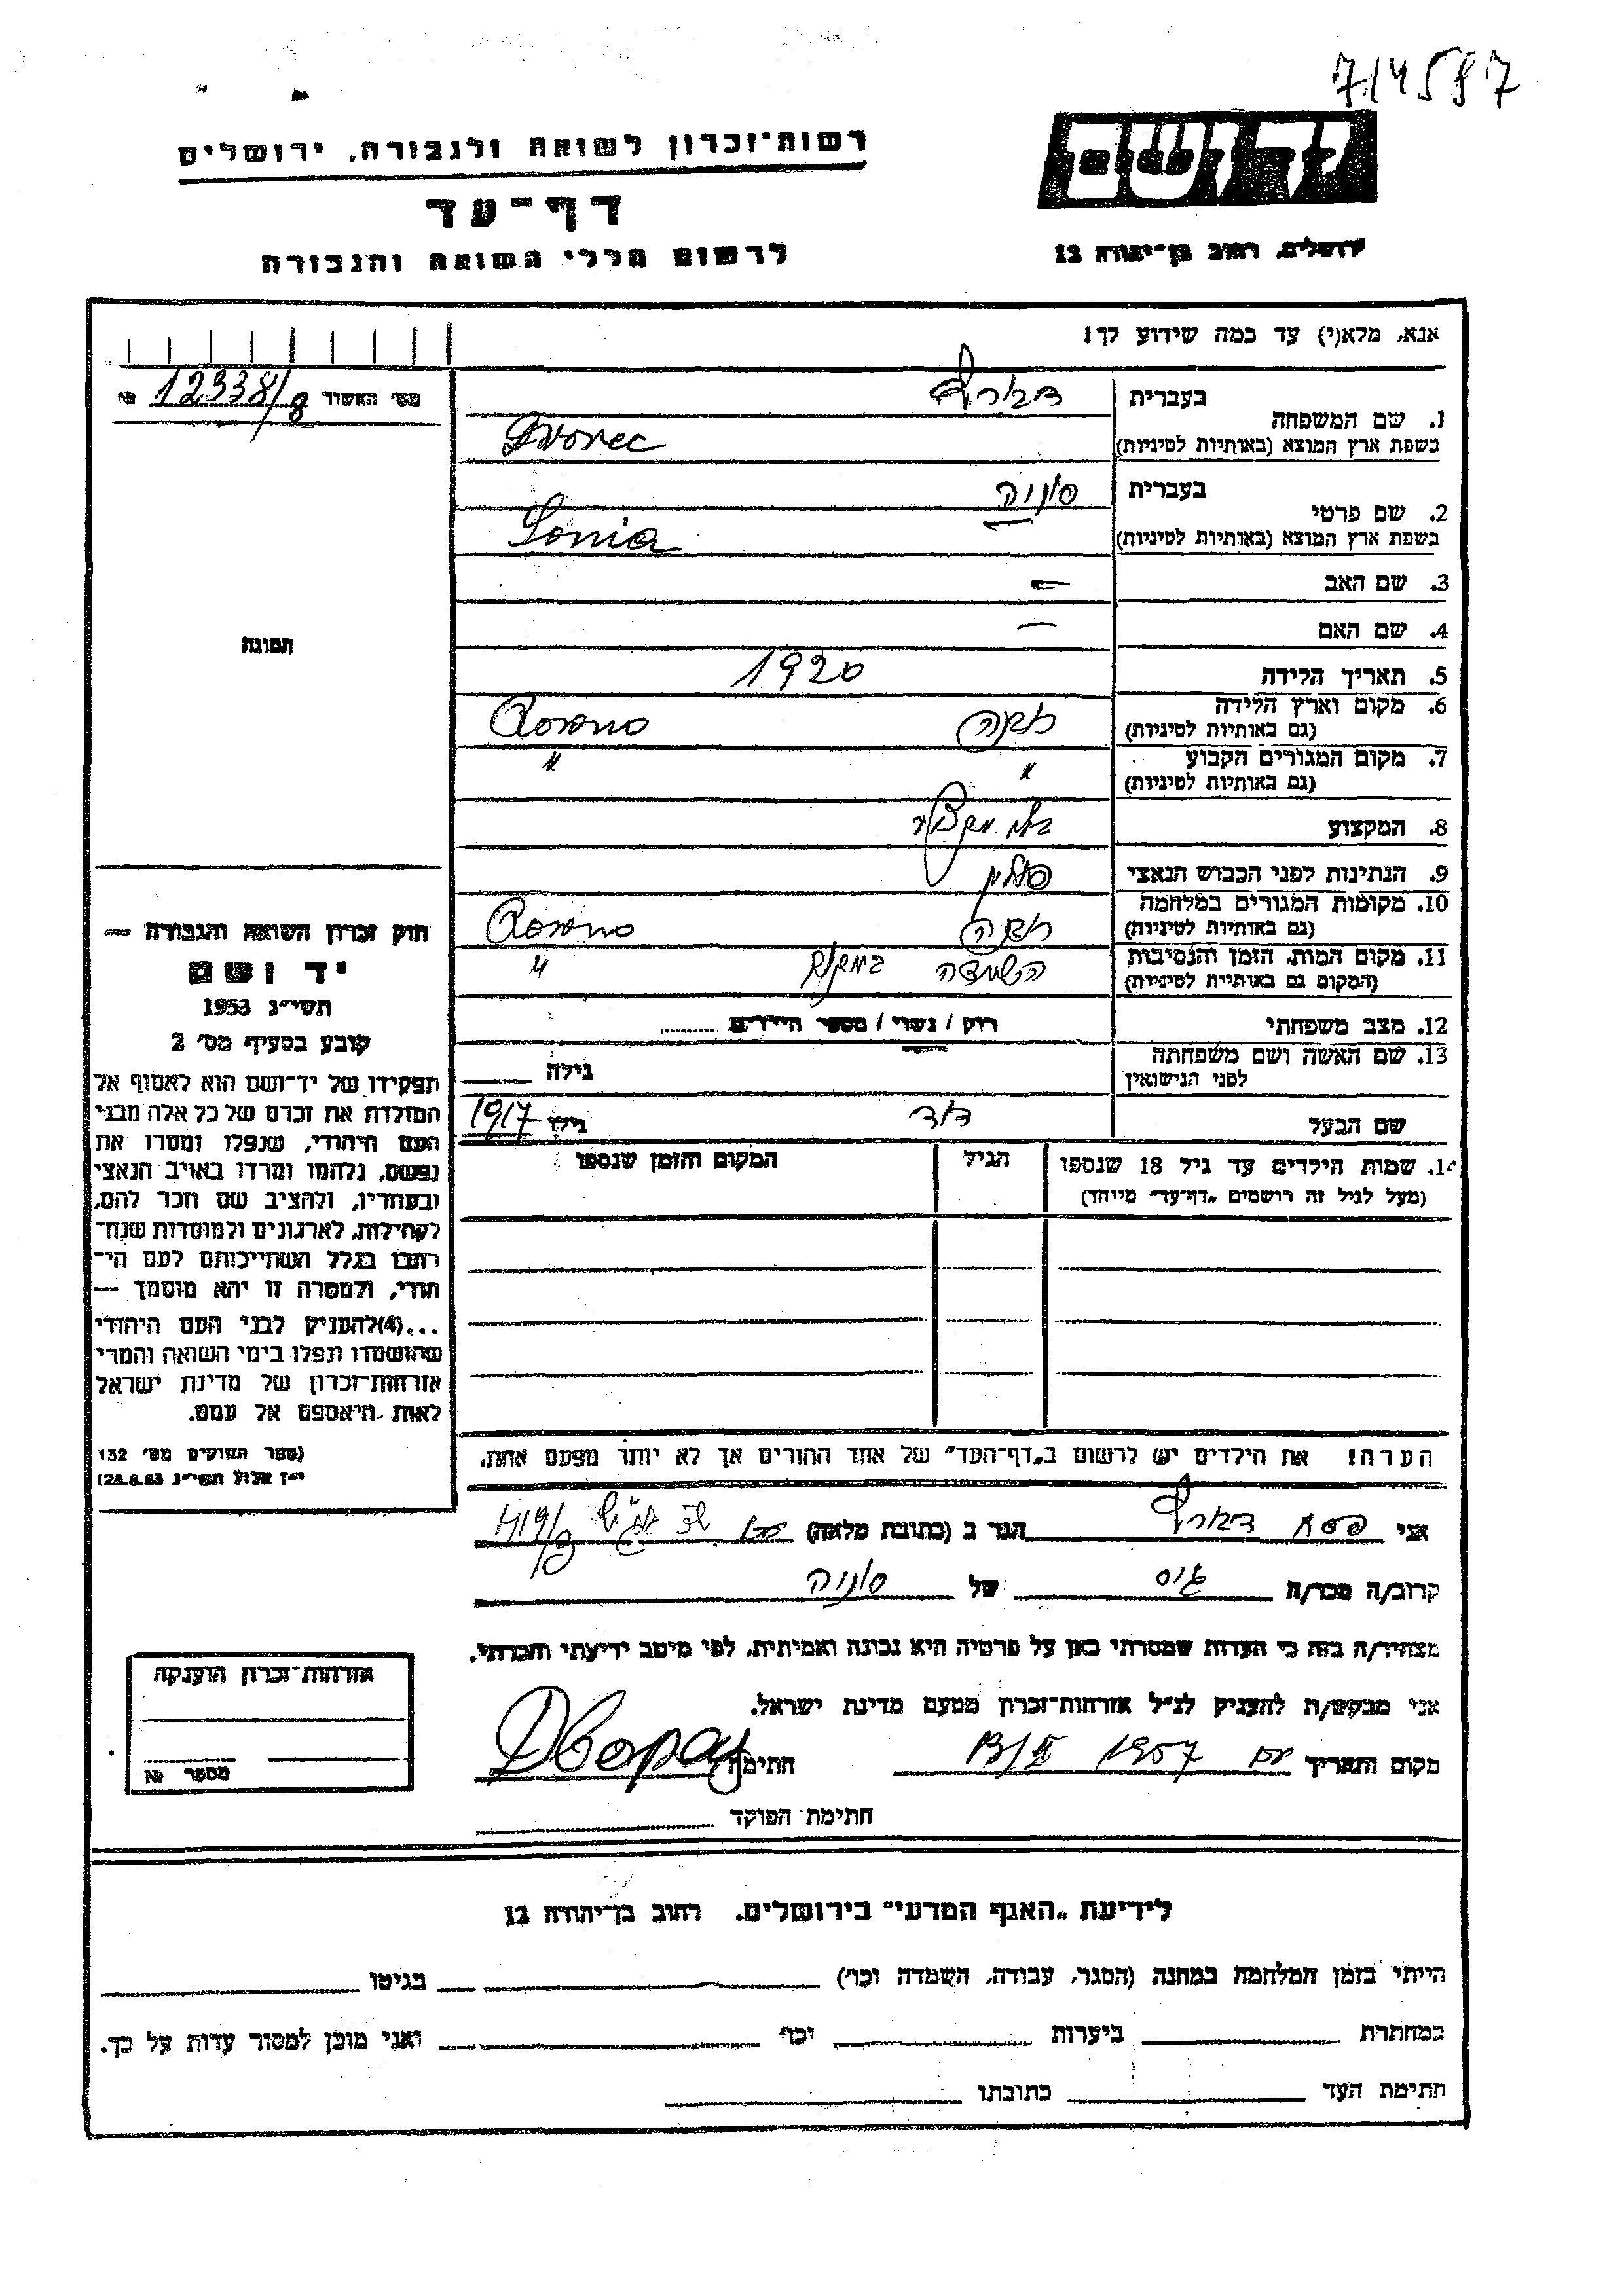 714587
יד ושם
רשות־זכרון לשואה ולגבורה, ירושלים
דף־עד
לרשום חללי השואה והגבורה
ירושלים, רחוב בן־יהודה 12
אנא, מלא(י) עד כמה שידוע לך!
מס׳ האשור № 12338/8
תמונה
1. שם המשפחה
בעברית
בשפת ארץ המוצא (באותיות לטיניות) Dvorec
2. שם פרטי
בעברית סוניה
בשפת ארץ המוצא (באותיות לטיניות) Sonia
3. שם האב —
4. שם האם —
5. תאריך הלידה 1920
6. מקום וארץ הלידה
(גם באותיות לטיניות)
7. מקום המגורים הקבוע " "
(גם באותיות לטיניות)
8. המקצוע
9. הנתינות לפני הכבוש הנאצי פולין
10. מקומות המגורים במלחמה
(גם באותיות לטיניות)
11. מקום המות, הזמן והנסיבות "
(המקום גם באותיות לטיניות)
12. מצב משפחתי רוק / נשוי / מספר הילדים ........
13. שם האשה ושם משפחתה גילה
לפני הנישואין
שם הבעל דוד גילו 1917
14. שמות הילדים עד גיל 18 שנספו הגיל המקום והזמן שנספו
(מעל לגיל זה רושמים „דף־עד” מיוחד)
הערה! את הילדים יש לרשום ב„דף־העד” של אחד ההורים אך לא יותר מפעם אחת.
חוק זכרון השואה והגבורה —
יד ושם
תשי״ג 1953
קובע בסעיף מס׳ 2
תפקידו של יד־ושם הוא לאסוף אל
המולדת את זכרם של כל אלה מבני
העם היהודי, שנפלו ומסרו את
נפשם, נלחמו ומרדו באויב הנאצי
ובעוזריו, ולהציב שם וזכר להם,
לקהילות, לארגונים ולמוסדות שנח־
רבו בגלל השתייכותם לעם הי־
הודי, ולמטרה זו יהא מוסמך —
...(4)להעניק לבני העם היהודי
שהושמדו ונפלו בימי השואה והמרי
אזרחות־זכרון של מדינת ישראל
לאות היאספם אל עמם.
(ספר החוקים מס׳ 132
י״ז אלול תשי״ג 28.8.53)
אני הגר ב (כתובת מלאה)
קרוב/ה מכר/ה גיס של סוניה
מצהיר/ה בזה כי העדות שמסרתי כאן על פרטיה היא נכונה ואמיתית, לפי מיטב ידיעתי והכרתי.
אני מבקש/ת להעניק לנ״ל אזרחות־זכרון מטעם מדינת ישראל.
מקום ותאריך 1957 חתימה
חתימת הפוקד
אזרחות־זכרון הוענקה
מספר №
לידיעת „האגף המדעי” בירושלים. רחוב בן־יהודה 12
הייתי בזמן המלחמה במחנה (הסגר, עבודה, השמדה וכו׳) בגיטו
במחתרת ביערות וכו׳ ואני מוכן למסור עדות על כך.
חתימת העד כתובתו